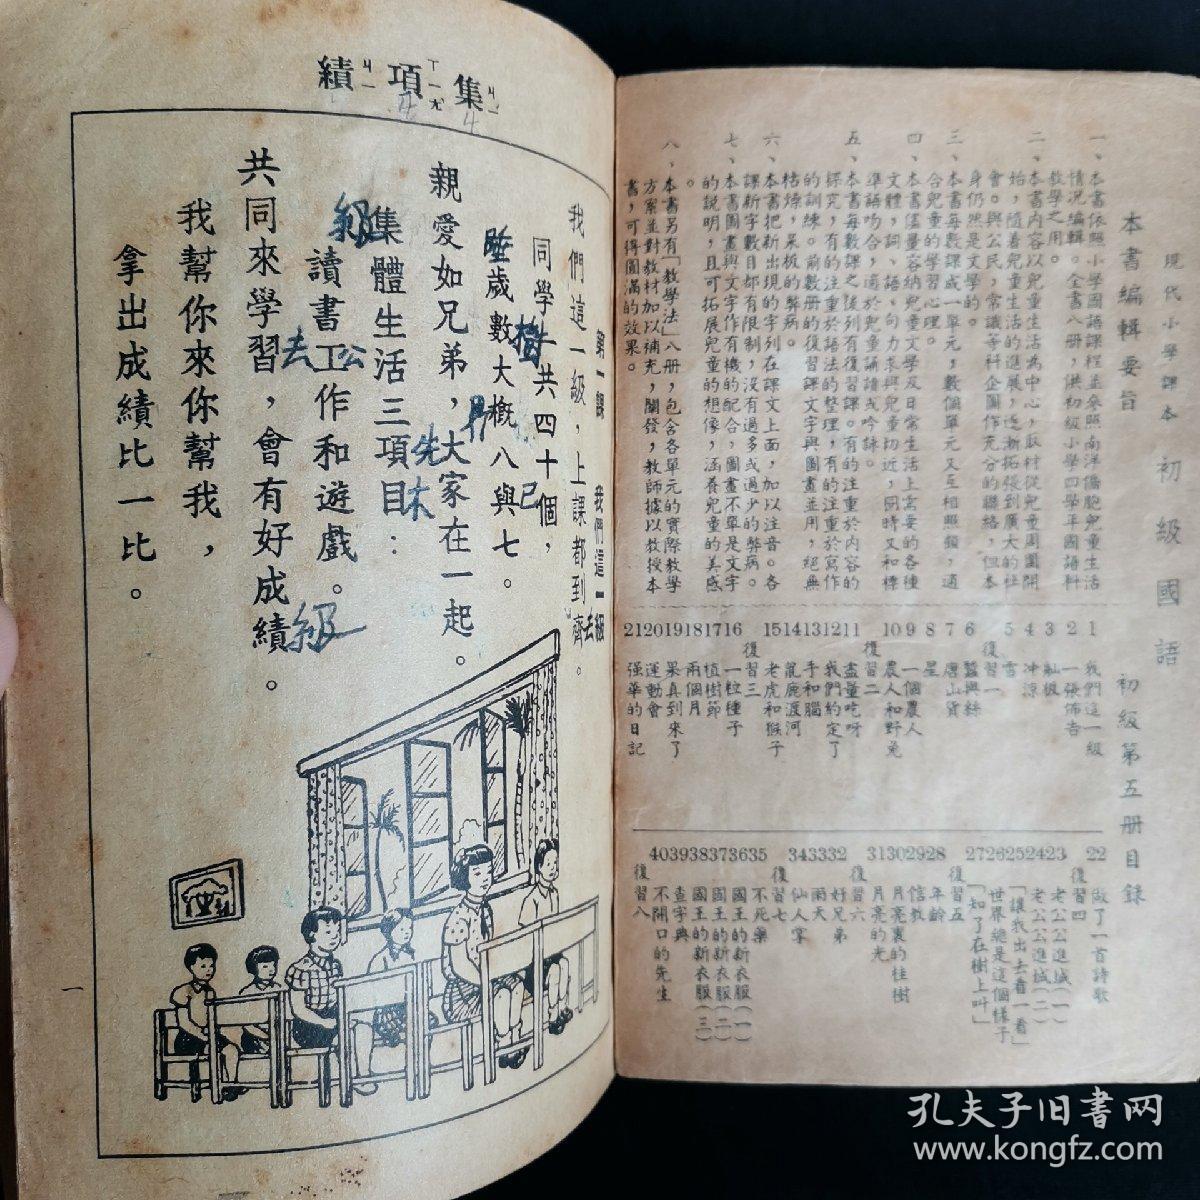 現代小學課本 初級國語 初級第五冊目錄
本書編輯要旨
一、本書依照小學國語課程並參照南洋僑胞兒童生活
情況編輯。全書八冊，供初級小學四學年國語科
教學之用。
二、本書內容以兒童生活為中心，取材從兒童周圍開
始，隨着兒童生活的進展，逐漸拓張到廣大的社
會。與公民，常識等科企圖作充分的聯絡，但本
身仍然是文學的。
三、本書每數課成一單元，數個單元又互相照顧，適
合兒童的學習心理。
四、本書儘量容納兒童文學及日常生活上需要的各種
文體，詞、語、句力求與兒童切近，同時又和標
準語吻合，適於兒童誦讀或吟詠。
五、本書每數課之後列有復習課。有的注重於內容的
探究，有的注重於語法的整理，有的注重於寫作
的訓練。前數冊的復習課文字與圖畫並用，絕無
枯燥，呆板的弊病。
六、本書把新出現的字列在課文上面，加以注音。各
課新字數目都有限制，沒有過多或過少的弊病。
七、本書圖畫與文字作有機的配合，圖畫不單是文字
的說明，且可拓展兒童的想像，涵養兒童的美感
。
八、本書另有「教學法」八冊，包含各單元的實際教學
方案並對教材加以補充，闡發，教師據以教授本
書，可得圓滿的效果。
1 我們這一級
2 一張佈告
3 舢板
4 冲涼
5 雪
復習一
6 蠶與絲
7 唐山貨
8 星
9 一個農人
10 農人和野兔
復習二
11 盡量吃呀
12 我們約定了
13 手和腦
14 龍鹿渡河
15 老虎和猴子
復習三
16 一粒種子
17 植樹節
18 兩個月
19 果真到來了
20 運動會
21 强華的日記
22 做了一首詩歌
復習四
23 老公公進城(一)
24 老公公進城(二)
25 「讓我出去看一看」
26 世界總是這個樣子
27 「知了在樹上叫」
復習五
28 年齡
29 信教
30 月亮裏的桂樹
31 月亮的光
復習六
32 好兄弟
33 雨天
34 仙人掌
復習七
35 不死藥
36 國王的新衣服(一)
37 國王的新衣服(二)
38 國王的新衣服(三)
39 查字典
40 不開口的先生
復習八
集 ㄐㄧ 項 ㄒㄧㄤ 績 ㄐㄧ
4 4
第一課 我們這一級
我們這一級，上課都到齊。
同學一共四十個，
歲數大概八與七。
親愛如兄弟，大家在一起。
集體生活三項目：
讀書工作和遊戲。
共同來學習，會有好成績。
我幫你來你幫我，
拿出成績比一比。
級
睡
樹
去
公
先
木
己
級
去
一
孔夫子旧书网
www.kongfz.com